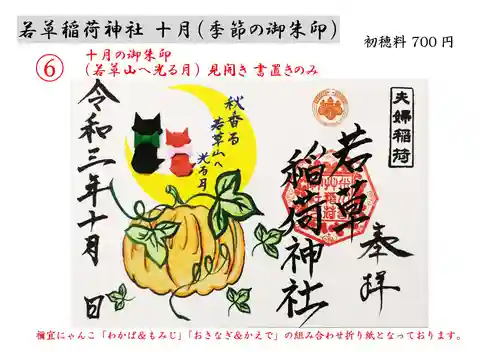 若草稲荷神社 十月(季節の御朱印)
初穂料 700 円
⑥
十月の御朱印
(若草山へ光る月) 見開き 書置きのみ
令和三年十月 日
秋香る
若草山へ
光る月
夫婦稲荷
奉拝
若草
稲荷神社
禰宜にゃんこ「わかば&もみじ」「おさなぎ&かえで」の組み合わせ折り紙となっております。